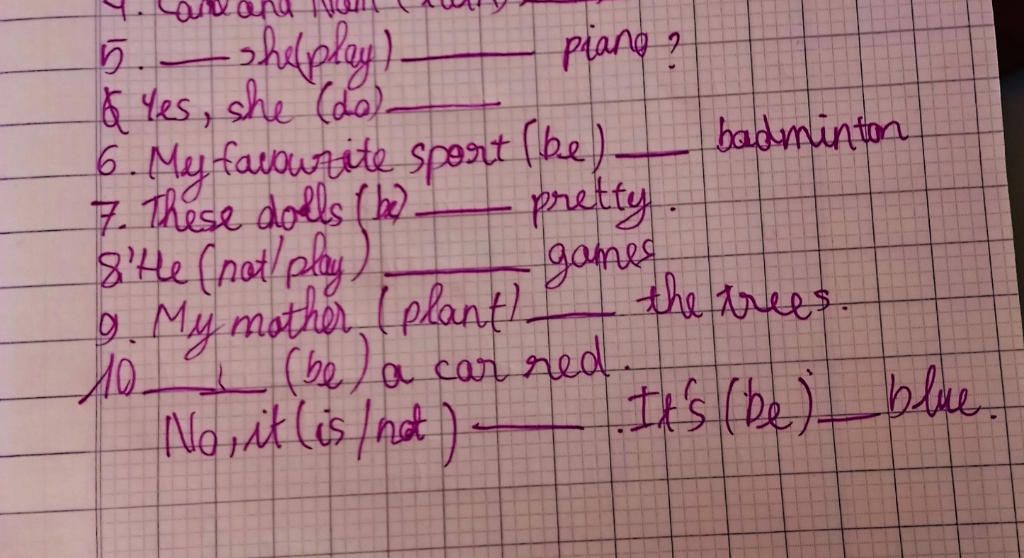 4. Lan and Nam (
5. ____ she (play) ________ piano?
Yes, she (do) ________
6. My favourite sport (be) ____ badminton
7. These dolls (be) ______ pretty.
8. He (not/play) _________ games
9. My mother (plant) _____ the trees.
10 ______ (be) a car red.
No, it (is/not) ______. It's (be) ___ blue.